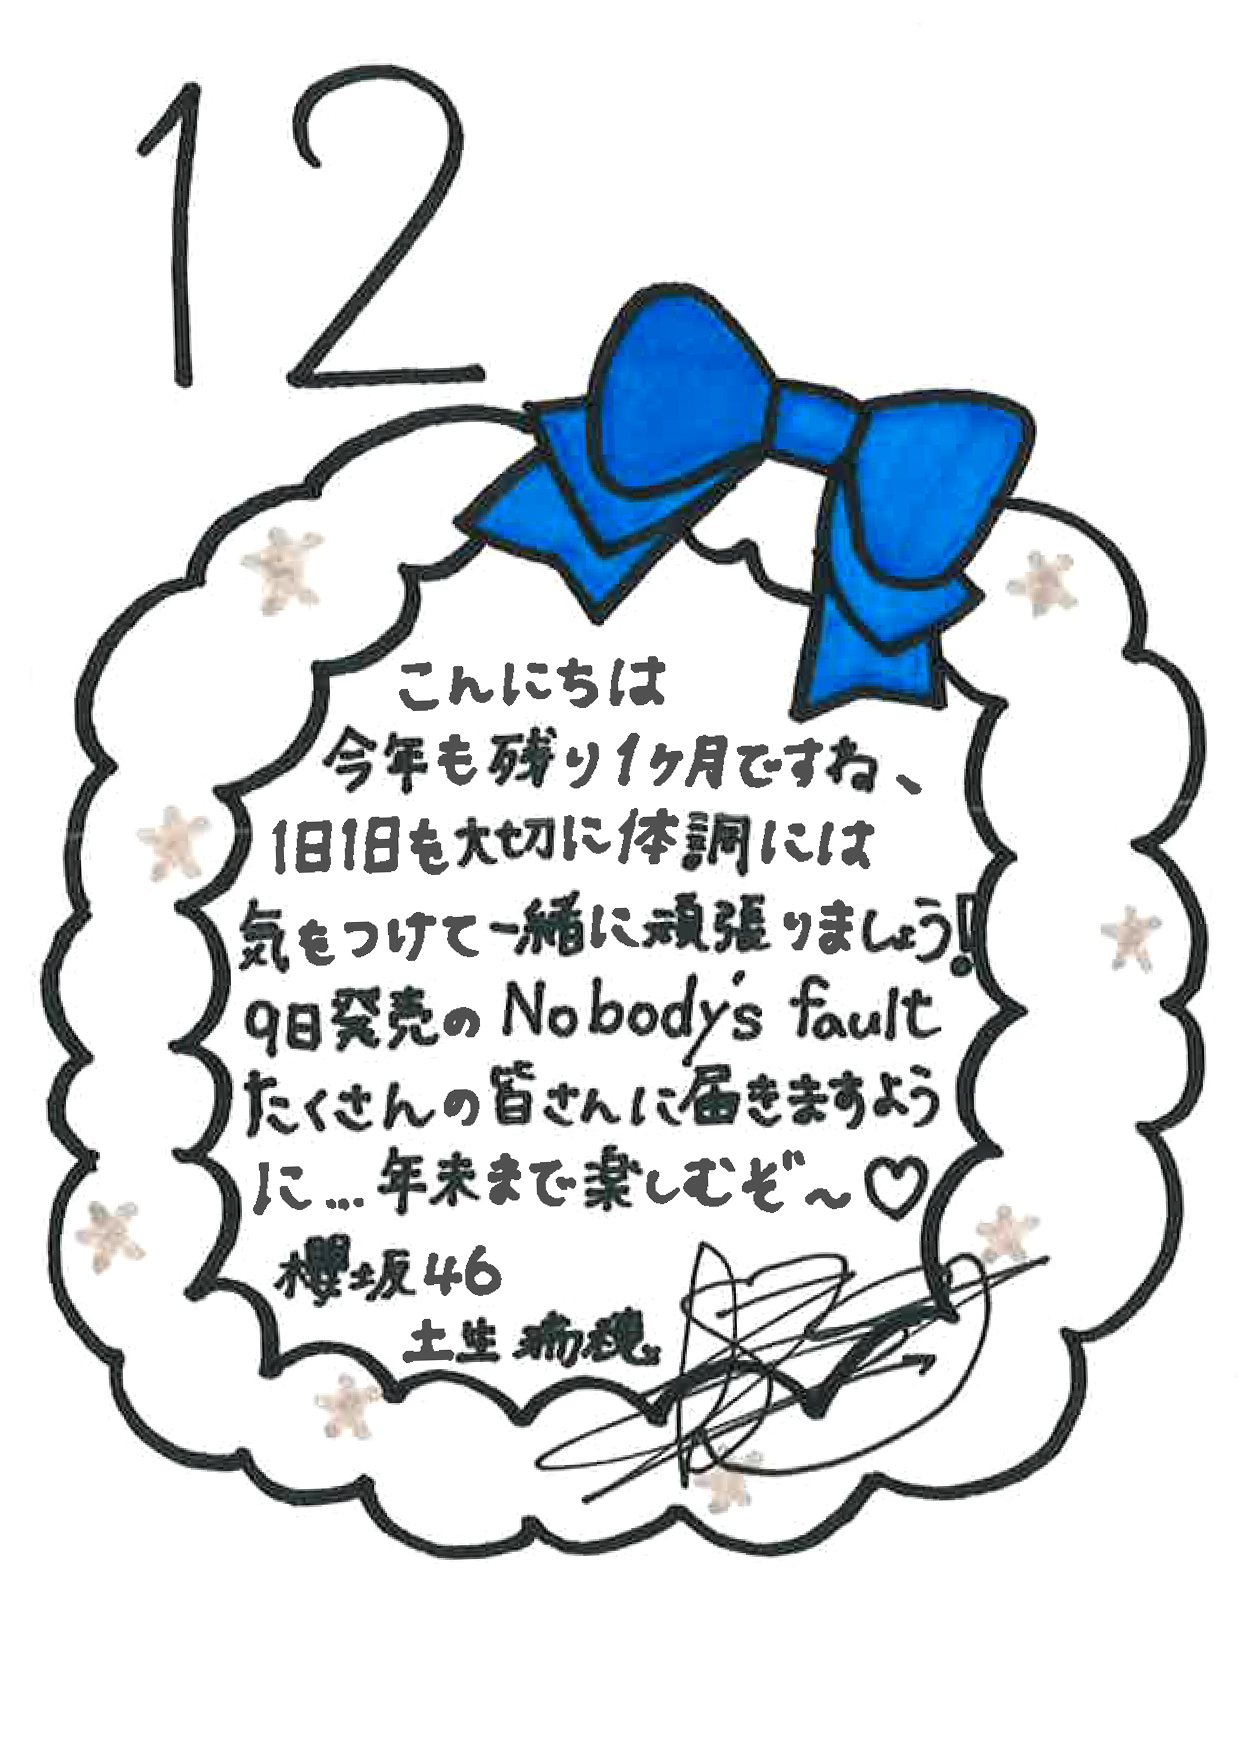 12
こんにちは
今年も残り1ヶ月ですね、
1日1日を大切に体調には
気をつけて一緒に頑張りましょう!
9日発売の Nobody's fault
たくさんの皆さんに届きますよう
に...年末まで楽しむぞ〜♡
櫻坂46
土生瑞穂